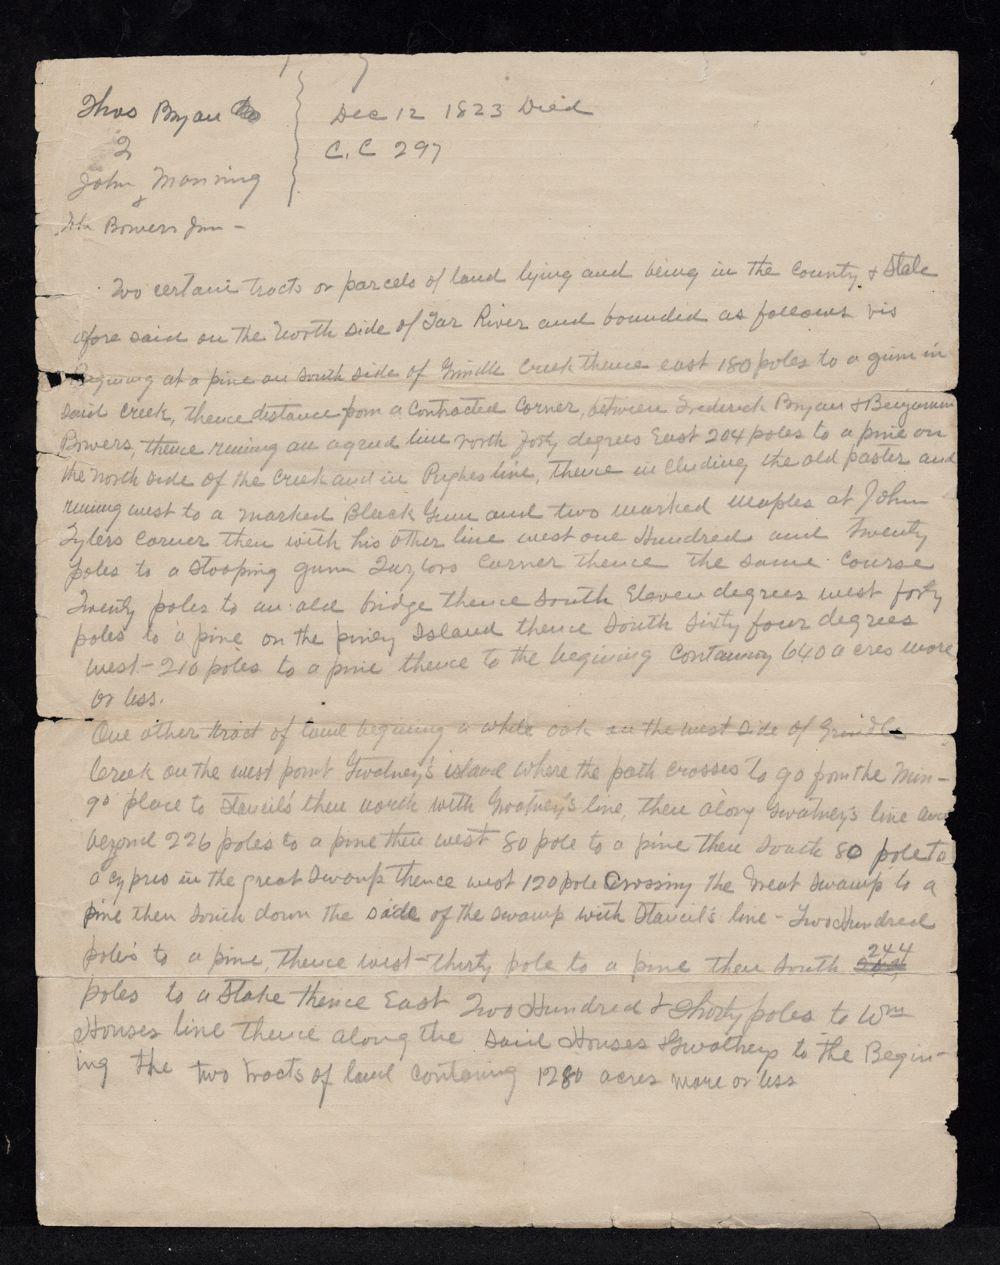 Thos Bryan
2
John Manning
&
Bowers Jnr -
Dec 12 1823 Died
C. C 297
Two certain tracts or parcels of land lying and being in the County & State
afore said on the North side of Tar River and bounded as follows vis
Begining at a pine on South side of Grindle Creek thence east 180 poles to a gum in
said creek, thence distance from a Contracted Corner, between Frederick Bryan & Benjamin
Bowers, thence runing an agreed line north forty degrees East 204 poles to a pine on
the North side of the Creek and in line, thence in cluding the old paster and
runing west to a marked Black Gum and two marked maples at John
Tylers Corner then with his other line west one Hundred and Twenty
poles to a Stooping gum Taylors Corner thence the same Course
Twenty poles to an old bridge thence South Eleven degrees west forty
poles to a pine on the piney Island thence South Sixty four degrees
west - 210 poles to a pine thence to the begining Containing 640 acres more
or less.
One other tract of land begining a white oak on the west side of Grindle
Creek on the west point Gwatney's island where the path crosses to go from the Min-
go place to Stancil's then north with Gwatney's line, then along Gwatney's line and
beyond 226 poles to a pine then west 80 pole to a pine then South 80 pole to
a cypris in the great Swamp thence west 120 pole Crossing the Great Swamp to a
pine then South down the side of the swamp with Stancil's line - Two Hundred
poles to a pine, thence west - thirty pole to a pine then South 244
poles to a Stake thence East Two Hundred & poles to Wm
Houses line thence along the said Houses & Gwatneys to the Begin-
ing the two tracts of land Containing 1280 acres more or less